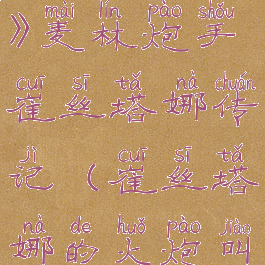 mài lín pào shǒu
》麦林炮手
cuī sī tǎ nà chuán
崔丝塔娜传
jì cuī sī tǎ
记（崔丝塔
nà de huǒ pào jiào
娜的火炮叫